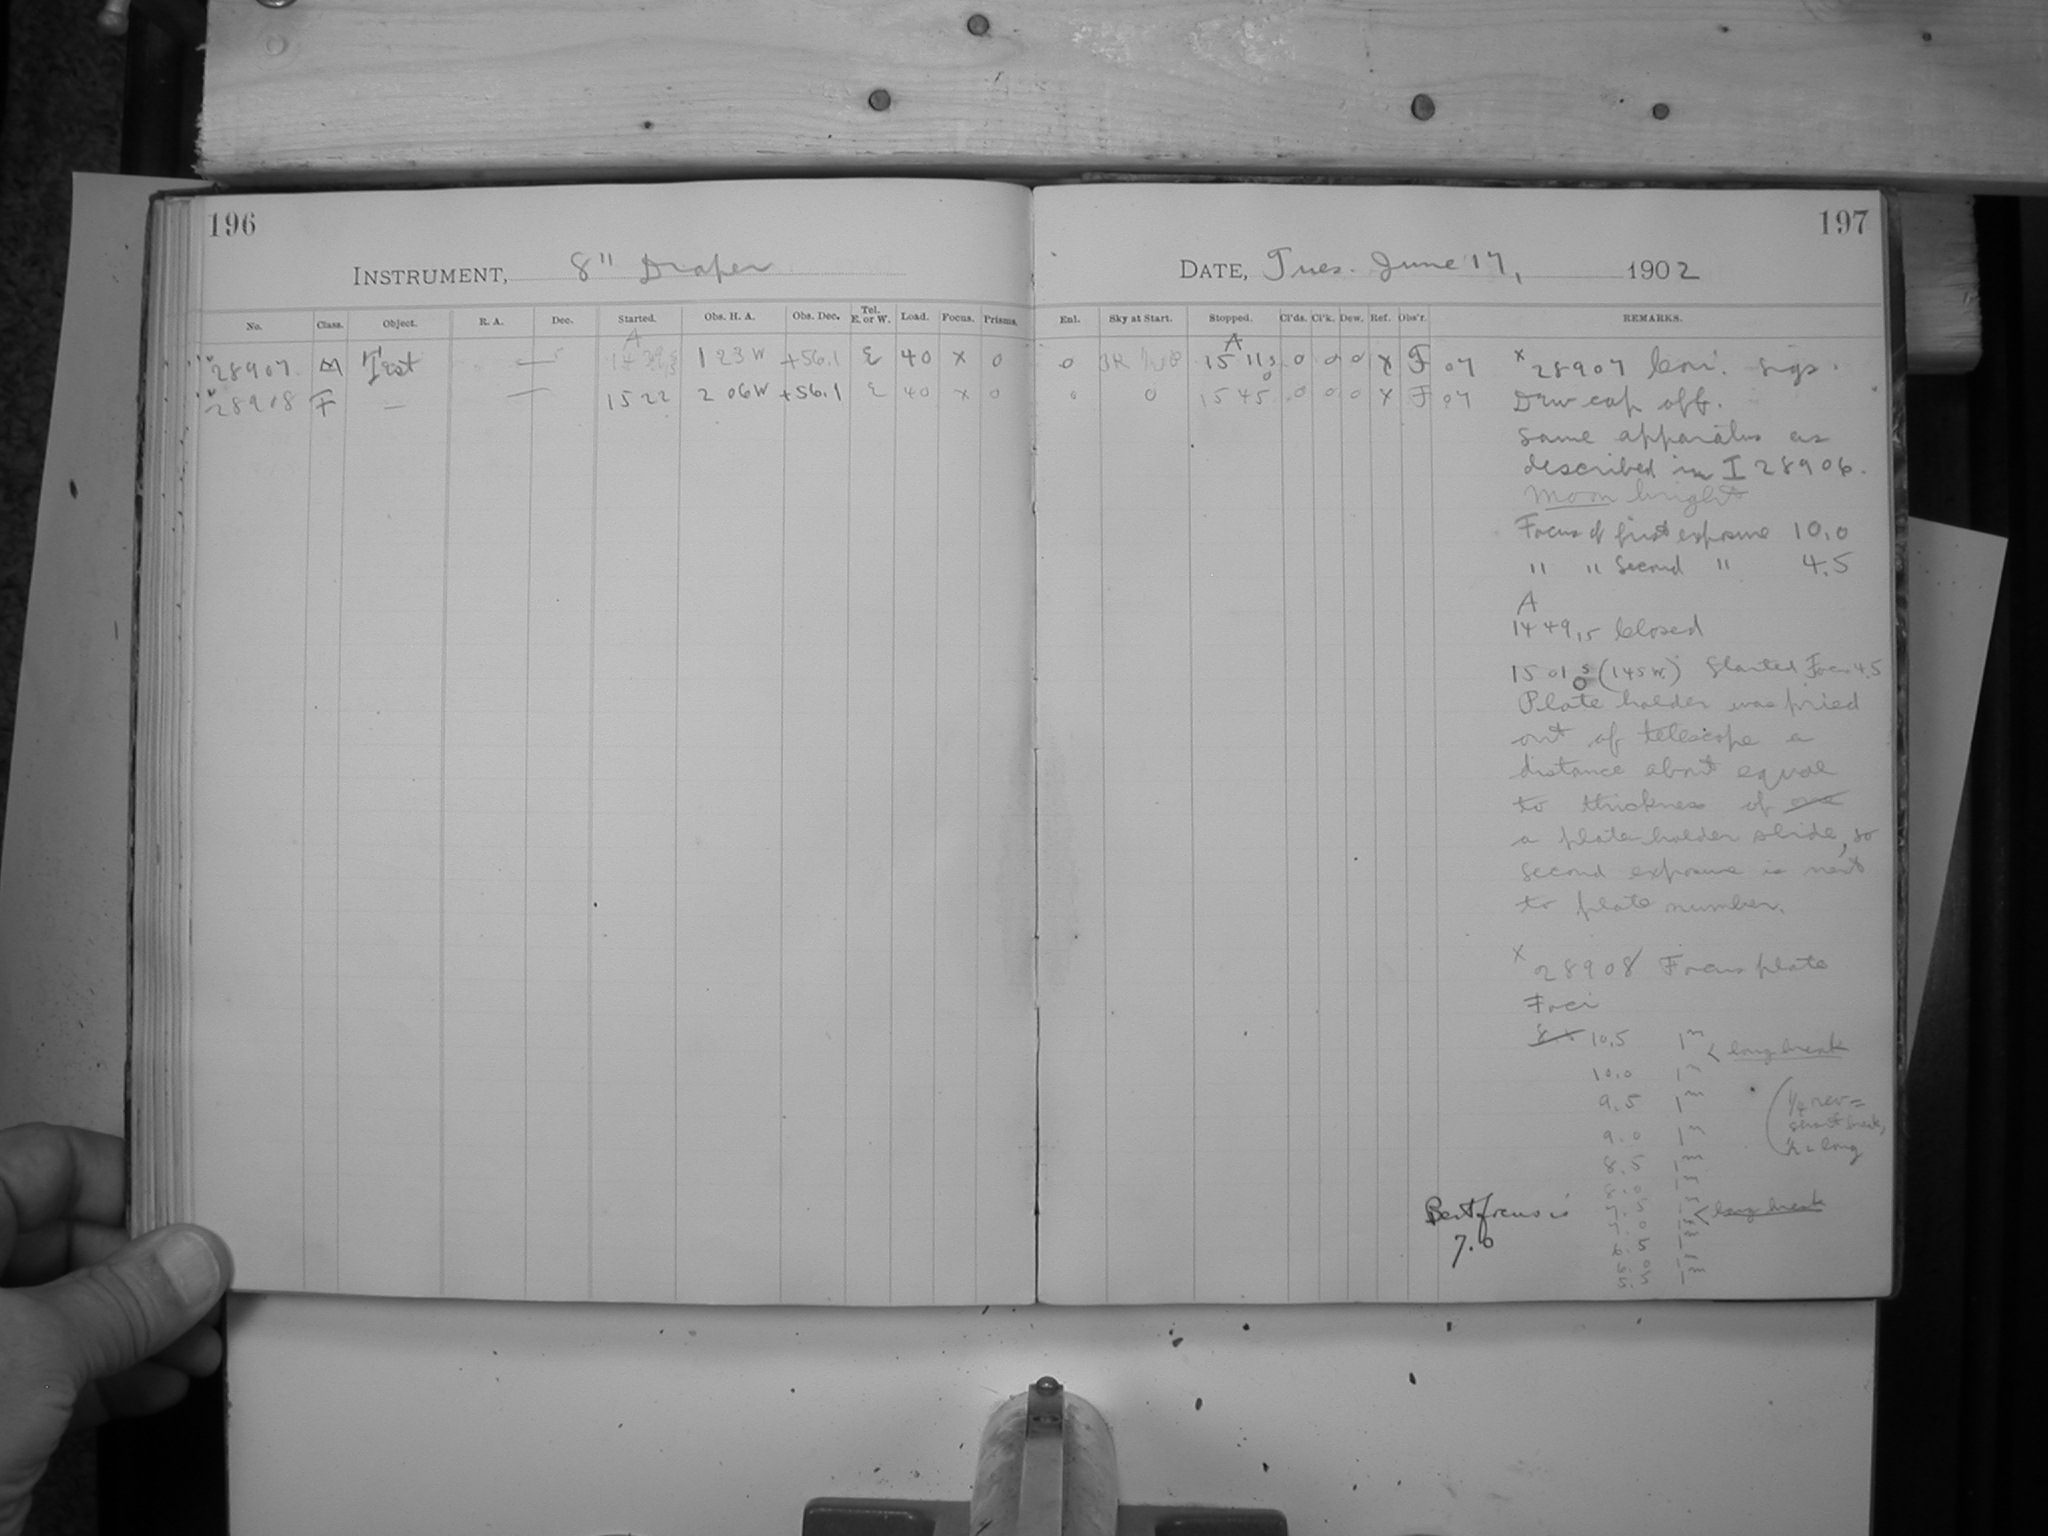 196
197
INSTRUMENT, 8" Draper
DATE, Tues. June 17, 1902
No. Class. Object. R. A. Dec. Started. Obs. H. A. Obs. Dec. Tel. E. or W. Load. Focus. Prisms.
Enl. Sky at Start. Stopped. Cl'ds. Cl'k. Dew. Ref. Obs'r. REMARKS.
A
A
28907. M Test — 1 23 W +56.1 E 40 x 0
0 15 11 0 0 0 x F 07
28908 F — — 15 22 2 06 W +56.1 E 40 x 0
0 0 15 45 0 0 0 x F 07
x 28907 sigs.
Dew cap off.
Same apparatus as
described in I 28906.
Moon bright
Focus of first exposure 10.0
" " second " 4.5
A
14 49,15 Closed
15 01 (1 45 W.) Started Focus 4.5
Plate holder was pried
out of telescope a
distance about equal
to thickness of
a plate holder slide, so
second exposure is next
to plate number.
x 28908 Focus plate
Foci
10.5 1m < long break
10.0 1m
9.5 1m
9.0 1m
8.5 1m
8.0 1
7.5 1 < long break
7.0 1
6.5 1
6.0 1
5.5 1m
(1/4 rev =
short break,
long
Best focus is
7.0